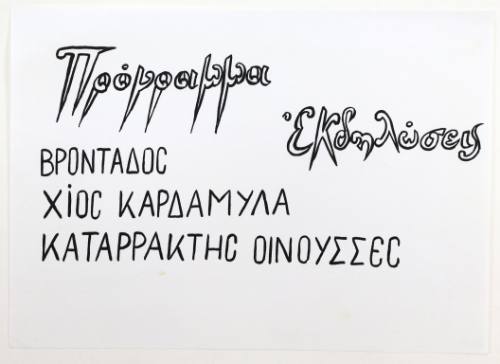 Πρόγραμμα
Ἐκδηλώσεις
ΒΡΟΝΤΑΔΟΣ
ΧίΟΣ ΚΑΡΔΑΜΥΛΑ
ΚΑΤΑΡΡΑΚΤΗΣ ΟΙΝΟΥΣΣΕΣ